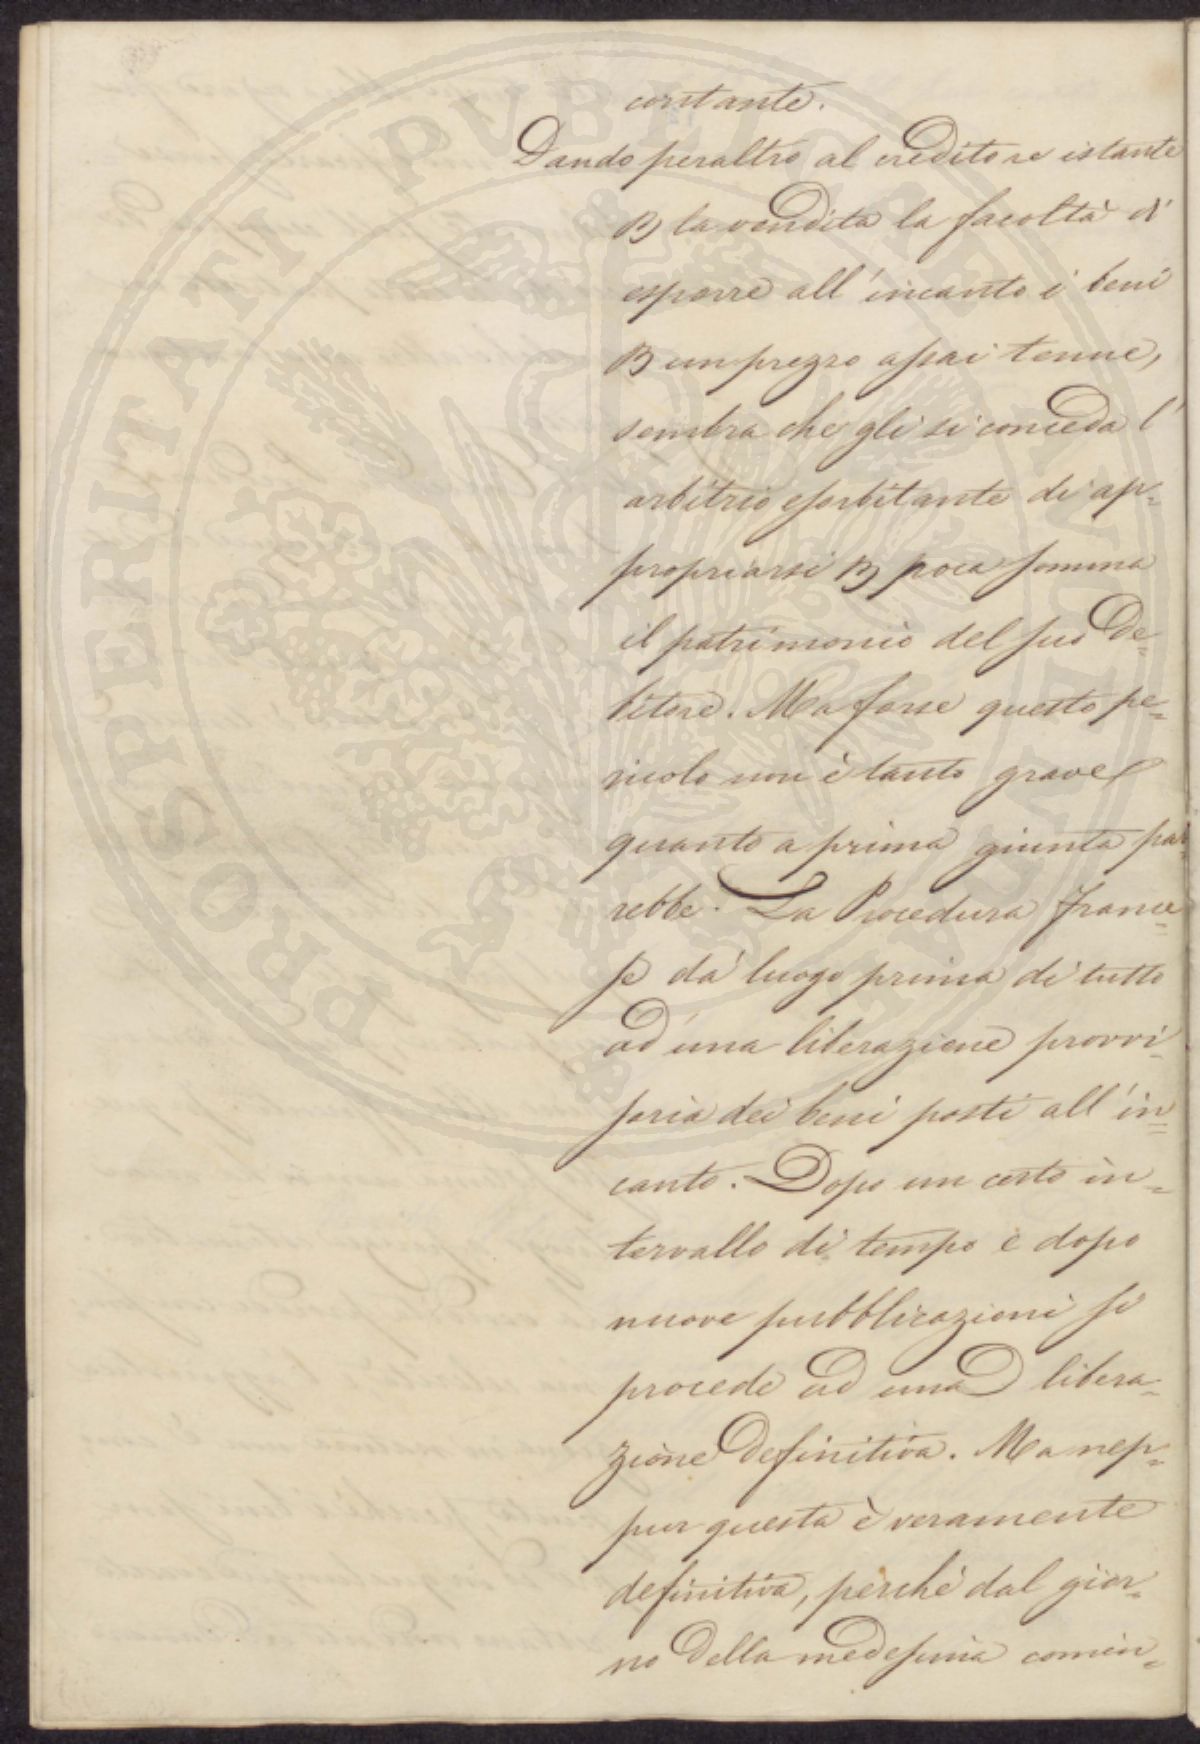 contante.
Dando peraltro al creditore istante
P la vendita la facoltà di
esporre all'incanto i beni
P un prezzo assai tenue,
sembra che gli si conceda l'
arbitrio esorbitante di ap=
propriarsi P poca somma
il patrimonio del suo de=
bitore. Ma forse questo pe=
ricolo non è tanto grave
quanto a prima giunta par
rebbe. La Procedura France=
se dà luogo prima di tutto
ad una liberazione provvi=
soria dei beni posti all'in=
canto. Dopo un certo in=
tervallo di tempo e dopo
nuove pubblicazioni si
procede ad una libera=
zione definitiva. Ma nep=
pur questa è veramente
definitiva, perchè dal gior=
no della medesima comin=
PROSPERITATI PVBLICAE